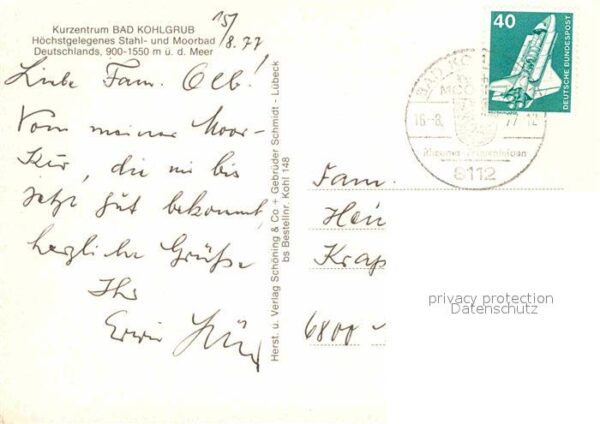 Kurzentrum BAD KOHLGRUB
Höchstgelegenes Stahl- und Moorbad
Deutschlands, 900-1550 m ü. d. Meer
15/8.77
Liebe Fam. Olb!
Vom meiner Moor-
Kur, die mir bis
jetzt gut bekommt,
herzliche Grüße
Ihr
Erwin
Herst. u. Verlag Schöning & Co + Gebrüder Schmidt - Lübeck
bs Bestellnr. Kohl 148
40
DEUTSCHE BUNDESPOST
BAD KO
MOO
16.-8.
77-12
8112
Fam.
Hein
Krap
6800
privacy protection
Datenschutz